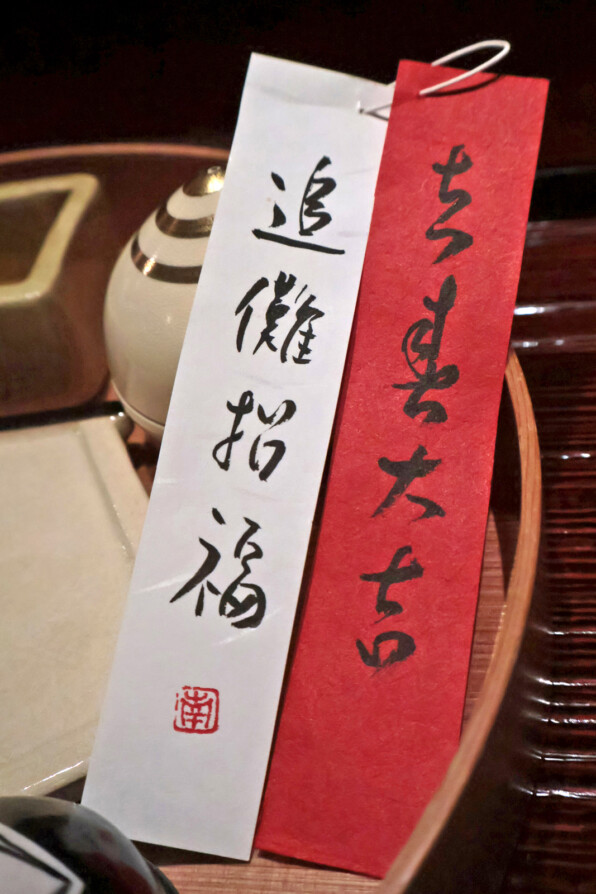 立春大吉
追儺招福
南